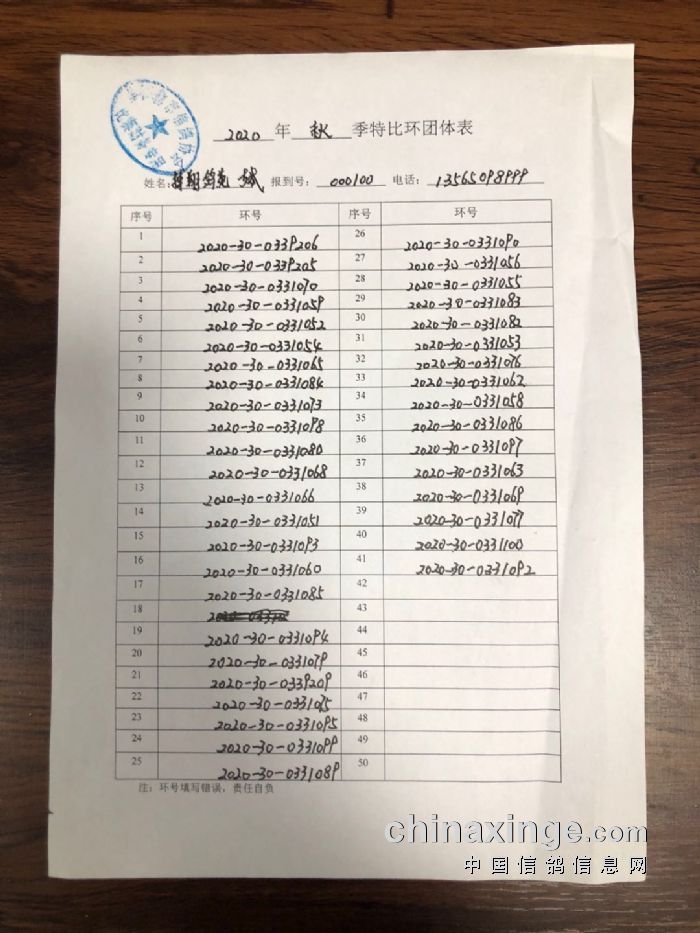 2020 年 秋 季特比环团体表
姓名: 报到号: 000100 电话: 13565098999
序号 环号 序号 环号
1 2020-30-0339206 26 2020-30-0331090
2 2020-30-0339205 27 2020-30-0331056
3 2020-30-0331070 28 2020-30-0331055
4 2020-30-0331059 29 2020-30-0331083
5 2020-30-0331052 30 2020-30-0331082
6 2020-30-0331054 31 2020-30-0331053
7 2020-30-0331065 32 2020-30-0331076
8 2020-30-0331084 33 2020-30-0331062
9 2020-30-0331073 34 2020-30-0331058
10 2020-30-0331098 35 2020-30-0331086
11 2020-30-0331080 36 2020-30-0331097
12 2020-30-0331068 37 2020-30-0331063
13 2020-30-0331066 38 2020-30-0331069
14 2020-30-0331051 39 2020-30-0331077
15 2020-30-0331093 40 2020-30-0331100
16 2020-30-0331060 41 2020-30-0331092
17 2020-30-0331085 42
18 43
19 2020-30-0331094 44
20 2020-30-0331079 45
21 2020-30-0339209 46
22 2020-30-0331075 47
23 2020-30-0331095 48
24 2020-30-0331099 49
25 2020-30-0331089 50
注: 环号填写错误, 责任自负
chinaxinge.com
中国信鸽信息网